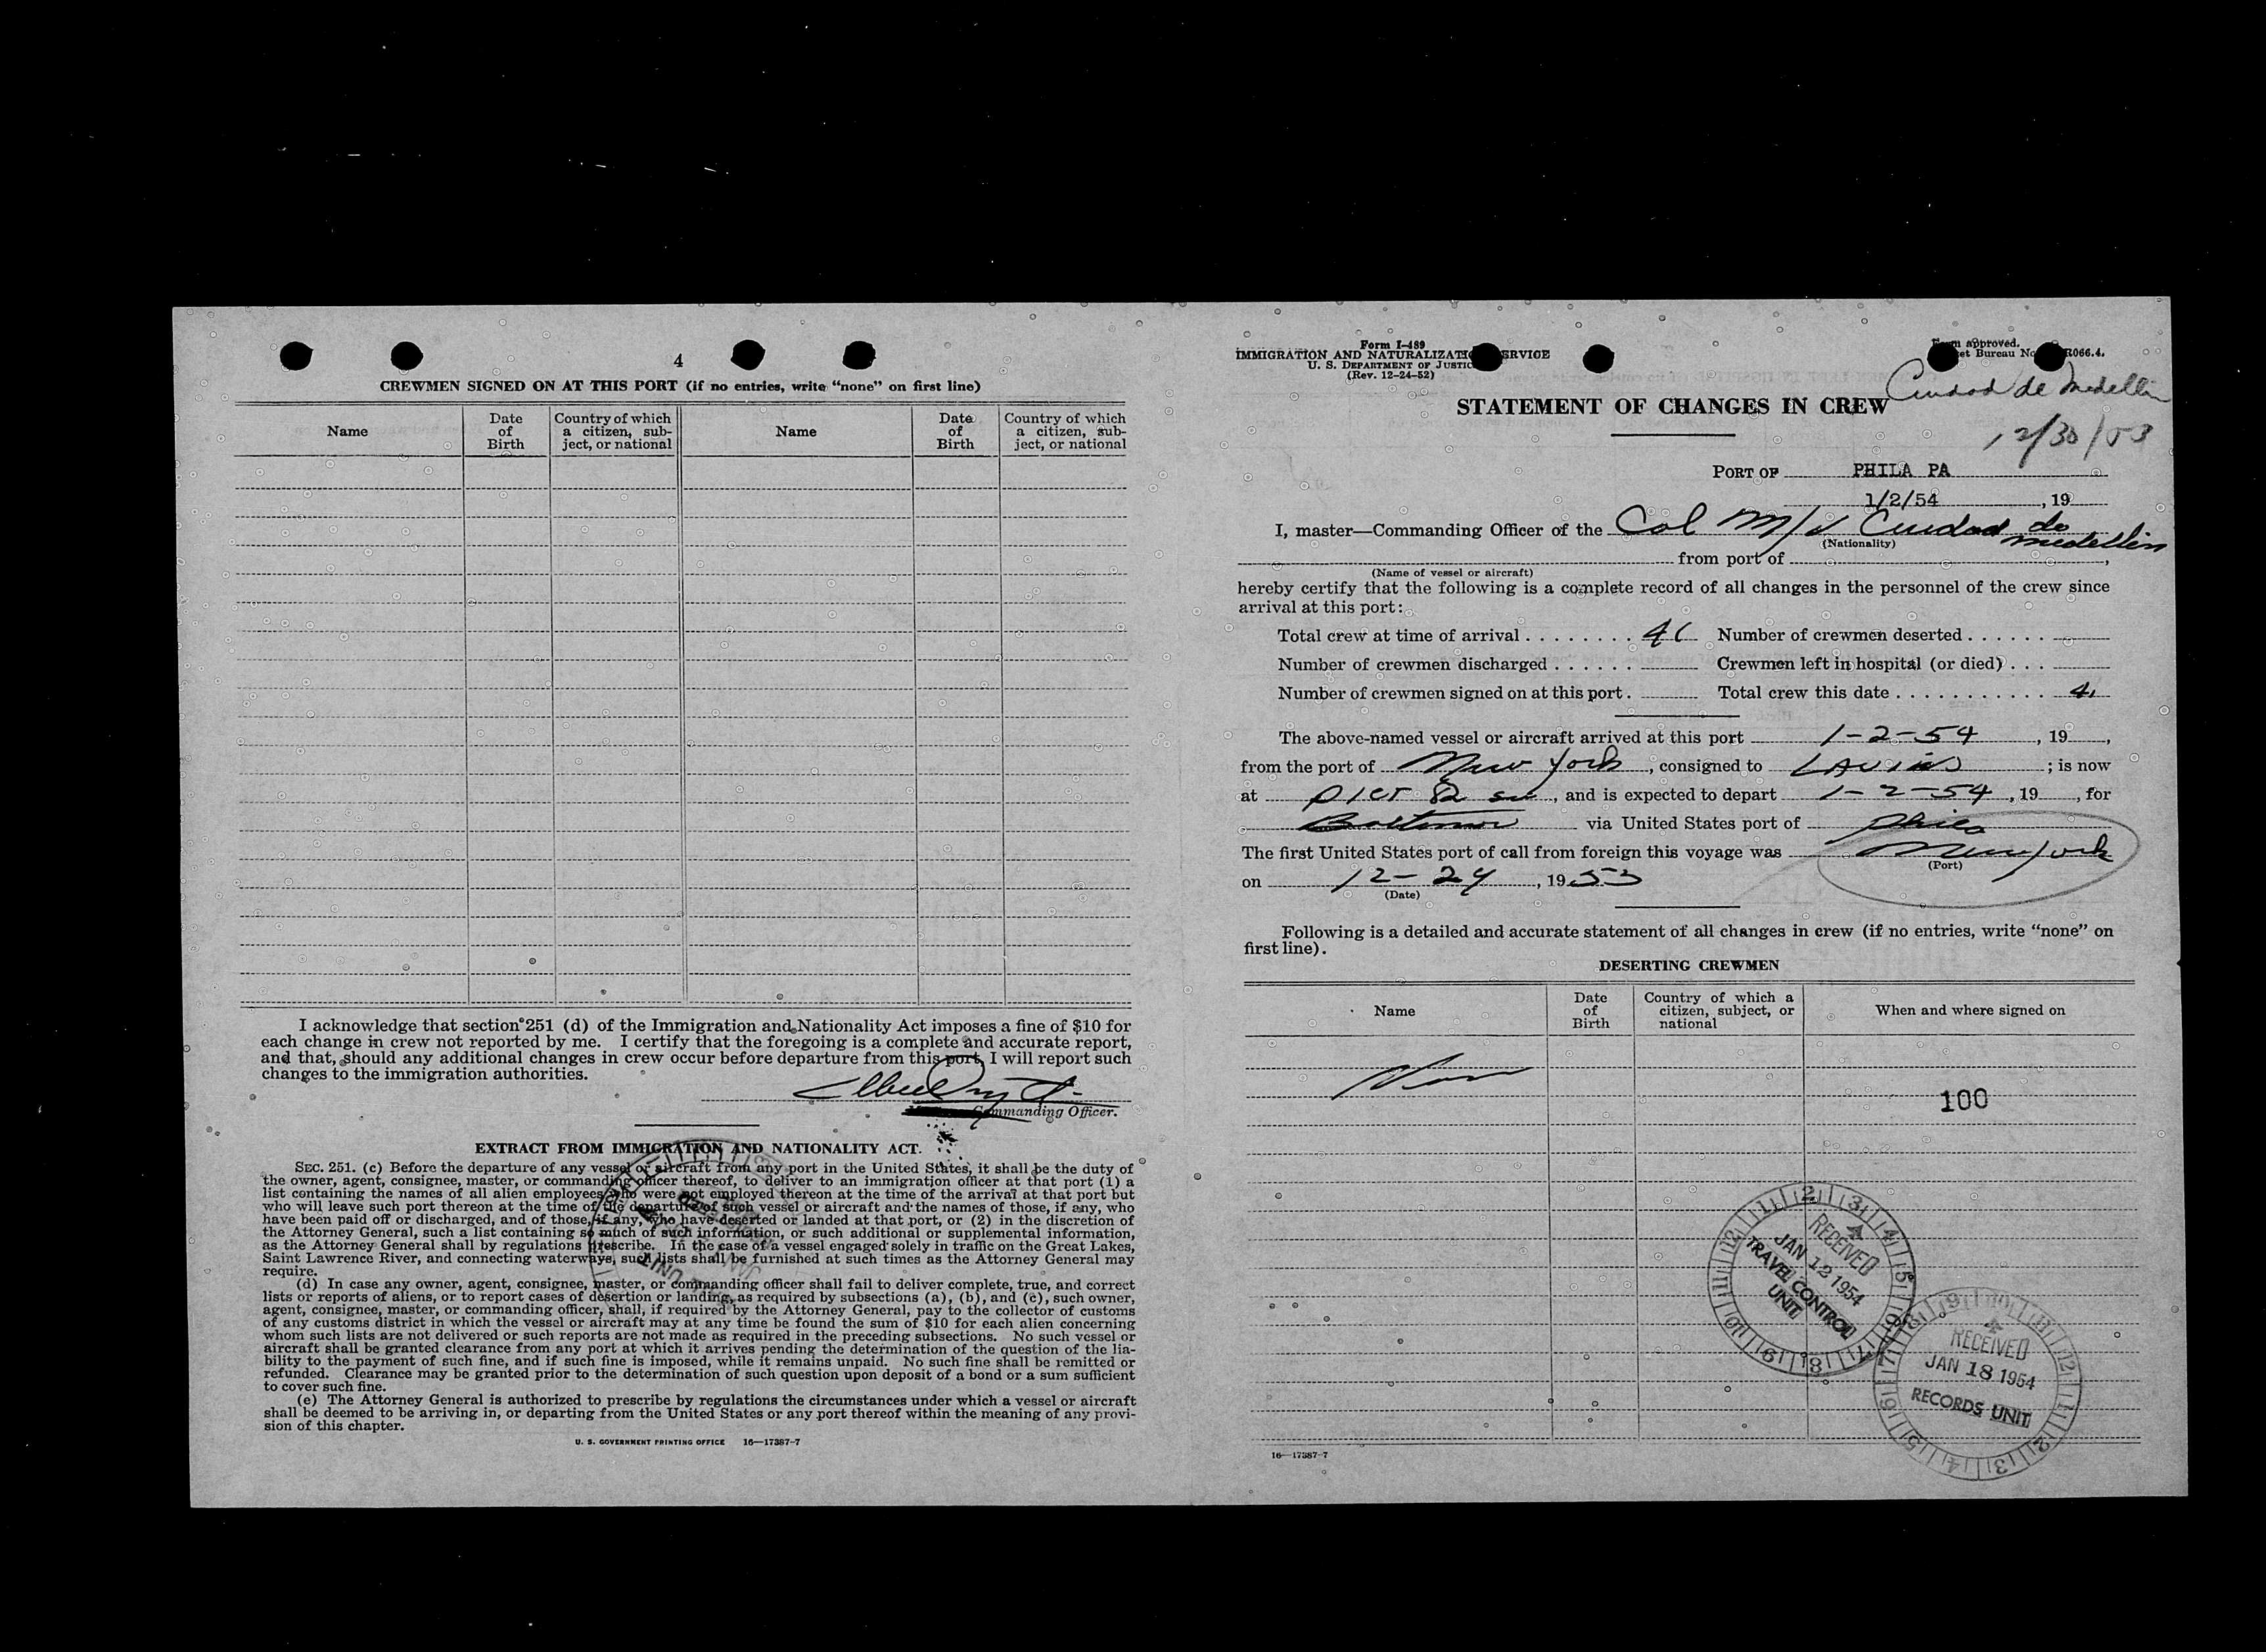 4
CREWMEN SIGNED ON AT THIS PORT (if no entries, write "none" on first line)
Name
Date of Birth
Country of which a citizen, subject, or national
Name
Date of Birth
Country of which a citizen, subject, or national
I acknowledge that section 251 (d) of the Immigration and Nationality Act imposes a fine of $10 for
each change in crew not reported by me. I certify that the foregoing is a complete and accurate report,
and that, should any additional changes in crew occur before departure from this port, I will report such
changes to the immigration authorities.
Commanding Officer.
EXTRACT FROM IMMIGRATION AND NATIONALITY ACT.
SEC. 251. (c) Before the departure of any vessel or aircraft from any port in the United States, it shall be the duty of
the owner, agent, consignee, master, or commanding officer thereof, to deliver to an immigration officer at that port (1) a
list containing the names of all alien employees who were not employed thereon at the time of the arrival at that port but
who will leave such port thereon at the time of the departure of such vessel or aircraft and the names of those, if any, who
have been paid off or discharged, and of those, if any, who have deserted or landed at that port, or (2) in the discretion of
the Attorney General, such a list containing so much of such information, or such additional or supplemental information,
as the Attorney General shall by regulations prescribe. In the case of a vessel engaged solely in traffic on the Great Lakes,
Saint Lawrence River, and connecting waterways, such lists shall be furnished at such times as the Attorney General may
require.
(d) In case any owner, agent, consignee, master, or commanding officer shall fail to deliver complete, true, and correct
lists or reports of aliens, or to report cases of desertion or landing, as required by subsections (a), (b), and (c), such owner,
agent, consignee, master, or commanding officer, shall, if required by the Attorney General, pay to the collector of customs
of any customs district in which the vessel or aircraft may at any time be found the sum of $10 for each alien concerning
whom such lists are not delivered or such reports are not made as required in the preceding subsections. No such vessel or
aircraft shall be granted clearance from any port at which it arrives pending the determination of the question of the lia-
bility to the payment of such fine, and if such fine is imposed, while it remains unpaid. No such fine shall be remitted or
refunded. Clearance may be granted prior to the determination of such question upon deposit of a bond or a sum sufficient
to cover such fine.
(e) The Attorney General is authorized to prescribe by regulations the circumstances under which a vessel or aircraft
shall be deemed to be arriving in, or departing from the United States or any port thereof within the meaning of any provi-
sion of this chapter.
U. S. GOVERNMENT PRINTING OFFICE 16—17387-7
Form I-489
IMMIGRATION AND NATURALIZATION SERVICE
U. S. DEPARTMENT OF JUSTICE
(Rev. 12-24-52)
approved.
Bureau No. R066.4.
Ciudad de Medellin
STATEMENT OF CHANGES IN CREW
12/30/53
PORT OF PHILA PA
1/2/54, 19
I, master—Commanding Officer of the Col M/V Ciudad de Medellin
(Nationality)
from port of
(Name of vessel or aircraft)
hereby certify that the following is a complete record of all changes in the personnel of the crew since
arrival at this port:
Total crew at time of arrival . . . . . . . . Number of crewmen deserted . . . . . .
Number of crewmen discharged . . . . . . Crewmen left in hospital (or died) . . .
Number of crewmen signed on at this port . Total crew this date . . . . . . . . . . . .
The above-named vessel or aircraft arrived at this port 1-2-54, 19 ,
from the port of New York, consigned to LAVINO; is now
at pier 82 so, and is expected to depart 1-2-54, 19 , for
Baltimore via United States port of Phila
The first United States port of call from foreign this voyage was New York
(Port)
on 12-24, 1953
(Date)
Following is a detailed and accurate statement of all changes in crew (if no entries, write "none" on
first line).
DESERTING CREWMEN
Name
Date of Birth
Country of which a citizen, subject, or national
When and where signed on
None
100
RECEIVED
JAN 12 1954
TRAVEL CONTROL
UNIT
RECEIVED
JAN 18 1954
RECORDS UNIT
16—17387-7